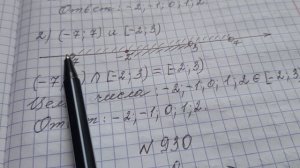 Ответ: -2, -1, 0, 1, 2.
2) (-7; 7) и [-2; 3)
-2 3 7
(-7; ) ∩ [-2; 3) = [-2; 3)
Целые числа: -2, -1, 0, 1, 2 ∈ [-2; 3)
Ответ: -2, -1, 0, 1, 2.
№ 930